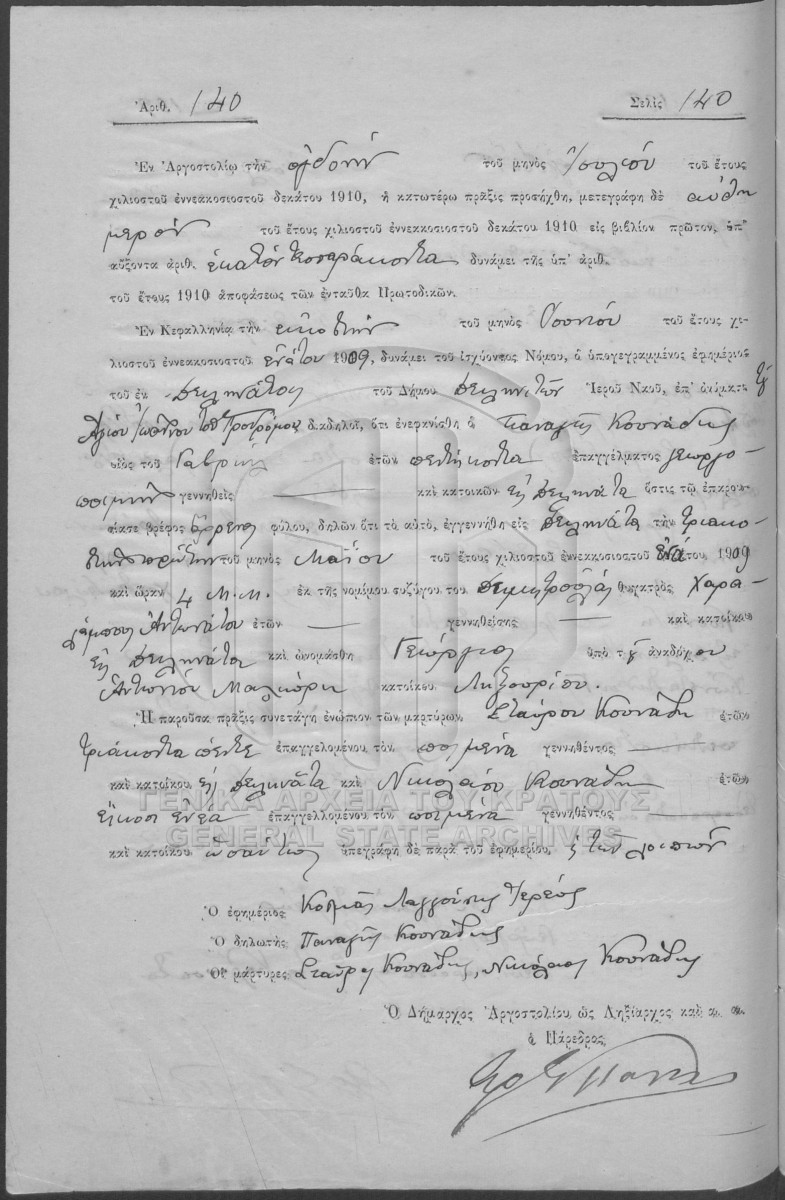 Ἀριθ. 140 Σελὶς 140
Ἐν Ἀργοστολίῳ τὴν ὀγδόην τοῦ μηνὸς Ἰουλίου τοῦ ἔτους
χιλιοστοῦ ἐννεακοσιοστοῦ δεκάτου 1910, ἡ κατωτέρω πρᾶξις προσήχθη, μετεγράφη δὲ αὐθη
μερὸν τοῦ ἔτους χιλιοστοῦ ἐννεακοσιοστοῦ δεκάτου 1910 εἰς βιβλίον πρῶτον, ὑπ'
αὔξοντα ἀριθ. ἑκατὸν τεσσαράκοντα δυνάμει τῆς ὑπ' ἀριθ.
τοῦ ἔτους 1910 ἀποφάσεως τῶν ἐνταῦθα Πρωτοδικῶν.
Ἐν Κεφαλληνίᾳ τὴν εἰκοστὴν τοῦ μηνὸς Ἰουνίου τοῦ ἔτους χι-
λιοστοῦ ἐννεακοσιοστοῦ ἐνάτου 1909, δυνάμει τοῦ ἰσχύοντος Νόμου, ὁ ὑπογεγραμμένος ἐφημέριος
τοῦ ἐκ Δειλινάτος τοῦ Δήμου Δειλινατῶν Ἱεροῦ Ναοῦ, ἐπ' ὀνόματι τοῦ
Ἁγίου Ἰωάννου τοῦ Προδρόμου διαδηλοῖ, ὅτι ἐνεφανίσθη ὁ Παναγῆς Κουνάδης
υἱὸς τοῦ Γαβριὴλ ἐτῶν πεντήκοντα ἐπαγγέλματος γεωργο-
ποιμὴν γεννηθεὶς — καὶ κατοικῶν εἰς Δειλινάτα ὅστις τῷ ἐπαρου-
σίασε βρέφος ἄρρενος φύλου, δηλῶν ὅτι τὸ αὐτό, ἐγεννήθη εἰς Δειλινάτα τὴν τριακο-
στὴν πρώτην τοῦ μηνὸς Μαΐου τοῦ ἔτους χιλιοστοῦ ἐννεακοσιοστοῦ ἐνάτου 1909
καὶ ὥραν 4 Μ.Μ. ἐκ τῆς νομίμου συζύγου του Δημητρούλας θυγατρὸς Χαρα-
λάμπους Ἀντωνάτου ἐτῶν — γεννηθείσης — καὶ κατοίκου
εἰς Δειλινάτα καὶ ὠνομάσθη Γεώργιος ὑπὸ τοῦ ἀναδόχου
Ἀντωνίου κατοίκου Ληξουρίου.
Ἡ παροῦσα πρᾶξις συνετάγη ἐνώπιον τῶν μαρτύρων Σταύρου Κουνάδη ἐτῶν
τριάκοντα πέντε ἐπαγγελομένου τὸν ποιμένα γεννηθέντος —
καὶ κατοίκου εἰς Δειλινάτα καὶ Νικολάου Κουνάδη ἐτῶν
εἴκοσι ἐννέα ἐπαγγελλομένου τὸν ποιμένα γεννηθέντος —
καὶ κατοίκου ὡσαύτως ὑπεγράφη δὲ παρὰ τοῦ ἐφημερίου, καὶ τῶν λοιπῶν
Ὁ ἐφημέριος Κοσμᾶς Ἱερεύς
Ὁ δηλωτὴς Παναγῆς Κουνάδης
Οἱ μάρτυρες Σταῦρος Κουνάδης, Νικόλαος Κουνάδης
Ὁ Δήμαρχος Ἀργοστολίου ὡς Ληξίαρχος καὶ ἀ. ἀ.
ὁ Πάρεδρος
ΓΕΝΙΚΑ ΑΡΧΕΙΑ ΤΟΥ ΚΡΑΤΟΥΣ
GENERAL STATE ARCHIVES